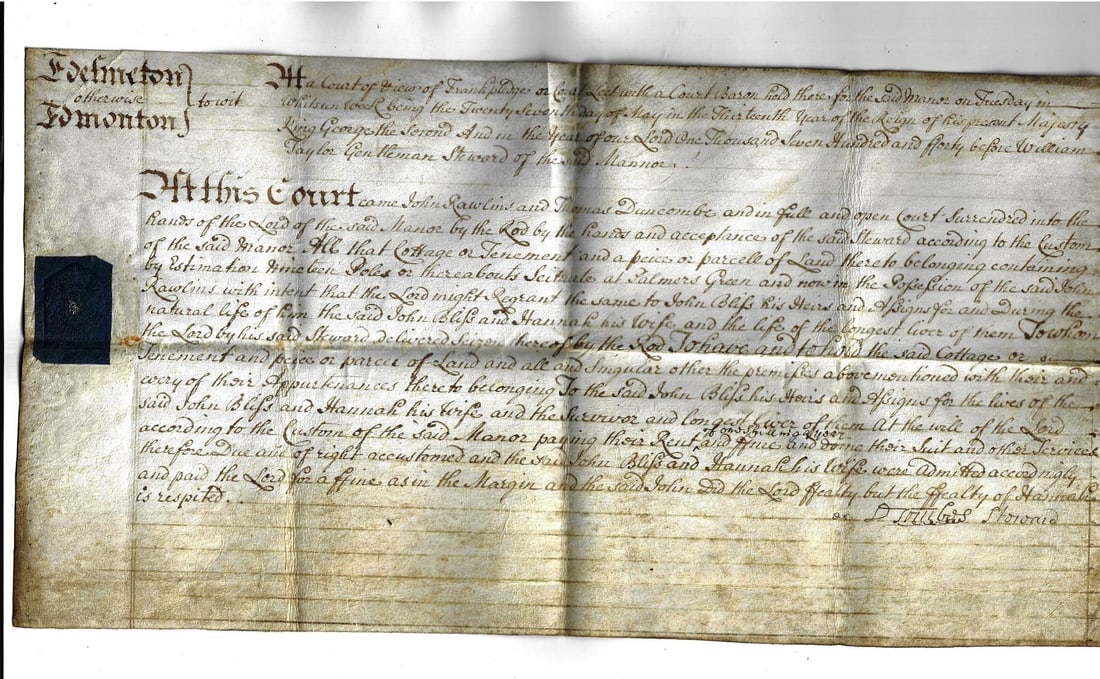 Edelmeton
otherwise
Edmonton
to wit
At a Court of View of Frankpledge or Court Leet with a Court Baron held there for the said Manor on Tuesday in
Whitsun Week being the Twenty Seventh day of May in the Thirteenth Year of the Reign of his present Majesty
King George the Second And in the Year of our Lord One Thousand Seven Hundred and fforty before William
Taylor Gentleman Steward of the said Mannor
At this Court came John Rawlins and Thomas Duncombe and in full and open Court Surrendred into the
hands of the Lord of the said Manor by the Rod by the hands and acceptance of the said Steward according to the Custom
of the said Manor All that Cottage or Tenement and a peice or parcell of Land thereto belonging containing
by Estimation Nineteen Poles or thereabouts Scituate at Palmers Green and now in the Possession of the said John
Rawlins with intent that the Lord might Regrant the same to John Bliss his Heirs and Assigns for and During the
natural life of him the said John Bliss and Hannah his Wife and the life of the longest liver of them To whom
the Lord by his said Steward delivered Seizen thereof by the Rod To have and to hold the said Cottage or
Tenement and peice or parcel of Land and all and Singular other the premises above mentioned with their and
every of their Appurtenances thereto belonging To the said John Bliss his Heirs and Assigns for the lives of the
said John Bliss and Hannah his Wife and the Survivor and longest liver of them At the will of the Lord
according to the Custom of the said Manor paying their Rent and ffine and doing their Suit and other Services
therefore Due and of right accustomed and the said John Bliss and Hannah his Wife were admitted accordingly
and paid the Lord for a ffine as in the Margin and the said John Did the Lord ffealty but the ffealty of Hannah
is respited
Steward